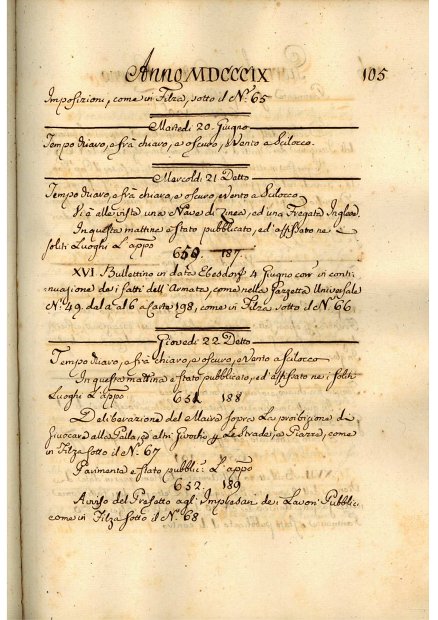 Anno MDCCCIX 105
Imposizioni, come in Filza, sotto il Nº 65
Martedì 20. Giugno
Tempo vario, e frà chiaro, e oscuro, e Vento a Scilocco.
Mercoldì 21 Detto
Tempo vario, e frà chiaro, e oscuro e Vento a Scilocco
Vi à alle vista una Nave di Linea, ed una Fregata Inglese
In questa mattina è stato pubblicato, ed affissato ne
soliti Luoghi L'appo
650 187
XVI Bullettino in data Ebesdorf 4 Giugno corr in conti:
nuazione dei fatti dell'Armata, come nella Gazzetta Universale
Nº 49. dal a al 6 a Carte 198, come in Filza sotto il Nº 66
Giovedì 22 Detto
Tempo vario, e frà chiaro, e oscuro, e Vento a Scilocco
In questa mattina è stato pubblicato, ed affissato ne i soliti
Luoghi L'appo
651 188
Deliberazione del Maire sopra La proibizione di
Giuocare alla Palla, e altri Giuochi Le Strade, e Piazze, come
in Filza sotto il Nº 67
Parimenti è stato pubblic: L'appo
652. 189
Avviso del Prefetto agl' Impresari dei Lavori Pubblici
come in Filza sotto il Nº 68